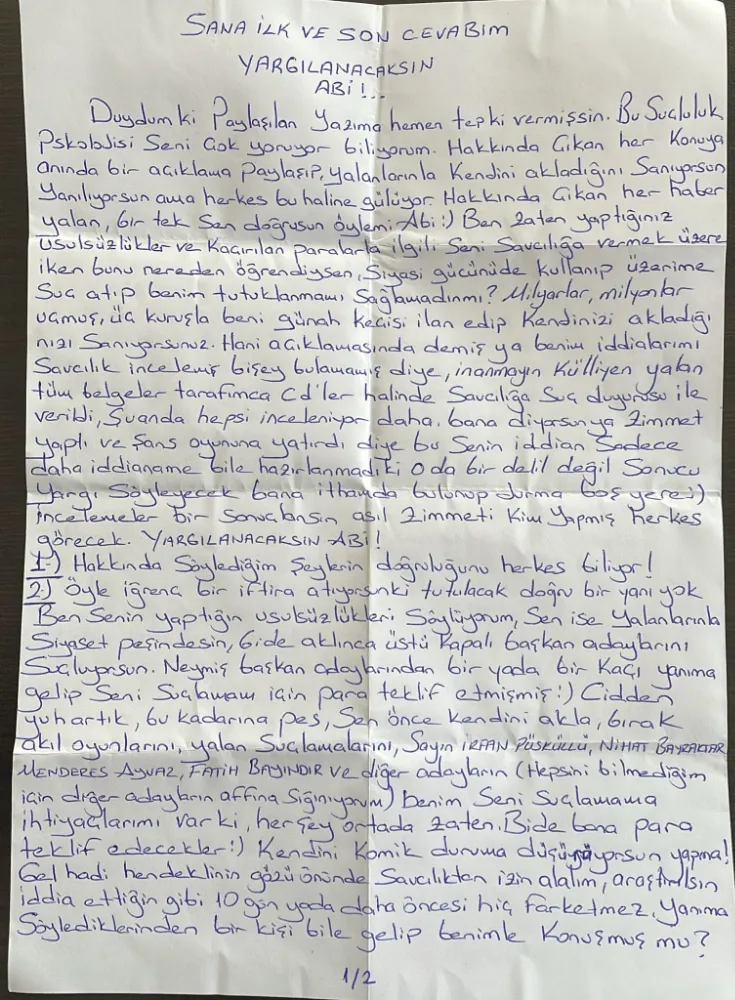 SANA İLK VE SON CEVABIM
YARGILANACAKSIN
ABİ!..
Duydum ki Paylaşılan Yazıma hemen tepki vermişsin. Bu Suçluluk
Pskolojisi Seni Çok yoruyor biliyorum. Hakkında Çıkan her Konuya
anında bir açıklama Paylaşıp, yalanlarınla Kendini akladığını Sanıyorsun
Yanılıyorsun ama herkes bu haline gülüyor. Hakkında Çıkan her haber
yalan, bir tek Sen doğrusun öylemi Abi:) Ben zaten yaptığınız
usulsüzlükler ve Kaçırılan paralarla ilgili Seni Savcılığa vermek üzere
iken bunu nereden öğrendiysen, Siyasi gücünüde kullanıp üzerime
Suç atıp benim tutuklanmamı Sağlamadınmı? Milyarlar, milyonlar
uçmuş, üç kuruşla beni günah Keçisi ilan edip Kendinizi akladığı
nızı Sanıyorsunuz. Hani açıklamasında demiş ya benim iddialarımı
Savcılık incelemiş bişey bulamamış diye, inanmayın Külliyen yalan
tüm belgeler tarafımca Cd'ler halinde Savcılığa Suç duyurusu ile
verildi, Şuanda hepsi inceleniyor daha. bana diyorsun ya Zimmet
yaptı ve Şans oyununa yatırdı diye bu Senin iddian Sadece
daha iddianame bile hazırlanmadı ki O da bir delil değil Sonucu
Yargı Söyleyecek bana ithamda bulunup durma boş yere:)
incelemeler bir Sonuçlansın asıl Zimmeti Kim Yapmış herkes
görecek. YARGILANACAKSIN ABİ!
1-) Hakkında Söylediğim Şeylerin doğruluğunu herkes biliyor!
2-) Öyle iğrenç bir iftira atıyorsunki tutulacak doğru bir yanı yok
Ben Senin yaptığın usulsüzlükleri Söylüyorum, Sen ise Yalanlarınla
Siyaset peşindesin, bide aklınca üstü Kapalı başkan adaylarını
Suçluyorsun. Neymiş başkan adaylarından bir yada bir Kaçı yanıma
gelip Seni Suçlamam için para teklif etmişmiş:) Cidden
yuh artık, bu kadarına pes, Sen önce kendini akla, bırak
akıl oyunlarını, yalan Suçlamalarını, Sayın İRFAN PÜSKÜLLÜ, NİHAT BAYRAKTAR
MENDERES AYVAZ, FATİH BAYINDIR ve diğer adayların (Hepsini bilmediğim
için diğer adayların affına Sığınıyorum) benim Seni Suçlamama
ihtiyaçlarımı var ki, herşey ortada zaten. Bide bana para
teklif edecekler:) Kendini Komik duruma düşürüyorsun yapma!
Gel hadi hendeklinin gözü önünde Savcılıktan izin alalım, araştırılsın
iddia ettiğin gibi 10 gün yada daha öncesi hiç farketmez. Yanıma
Söylediklerinden bir kişi bile gelip benimle Konuşmuş mu?
1/2